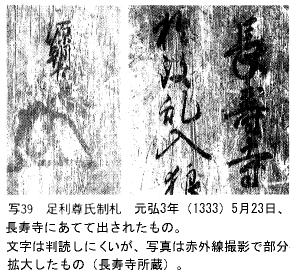 長寿寺
乱入狼
写39 足利尊氏制札 元弘3年（1333）5月23日、
長寿寺にあてて出されたもの。
文字は判読しにくいが、写真は赤外線撮影で部分
拡大したもの（長寿寺所蔵）。